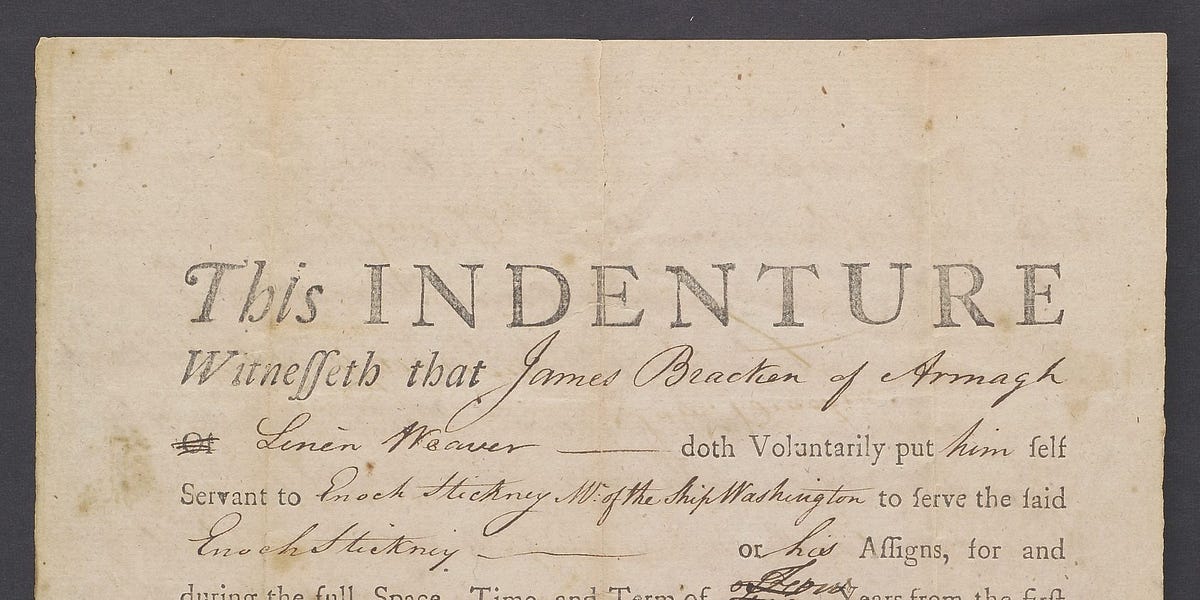 This INDENTURE
Witneſſeth that James Bracken of Armagh
Of Linen Weaver —— doth Voluntarily put him ſelf
Servant to Enoch Stickney Mr. of the Ship Washington to ſerve the ſaid
Enoch Stickney —— or his Aſſigns, for and
during the full Space, Time and Term of Years from the firſt